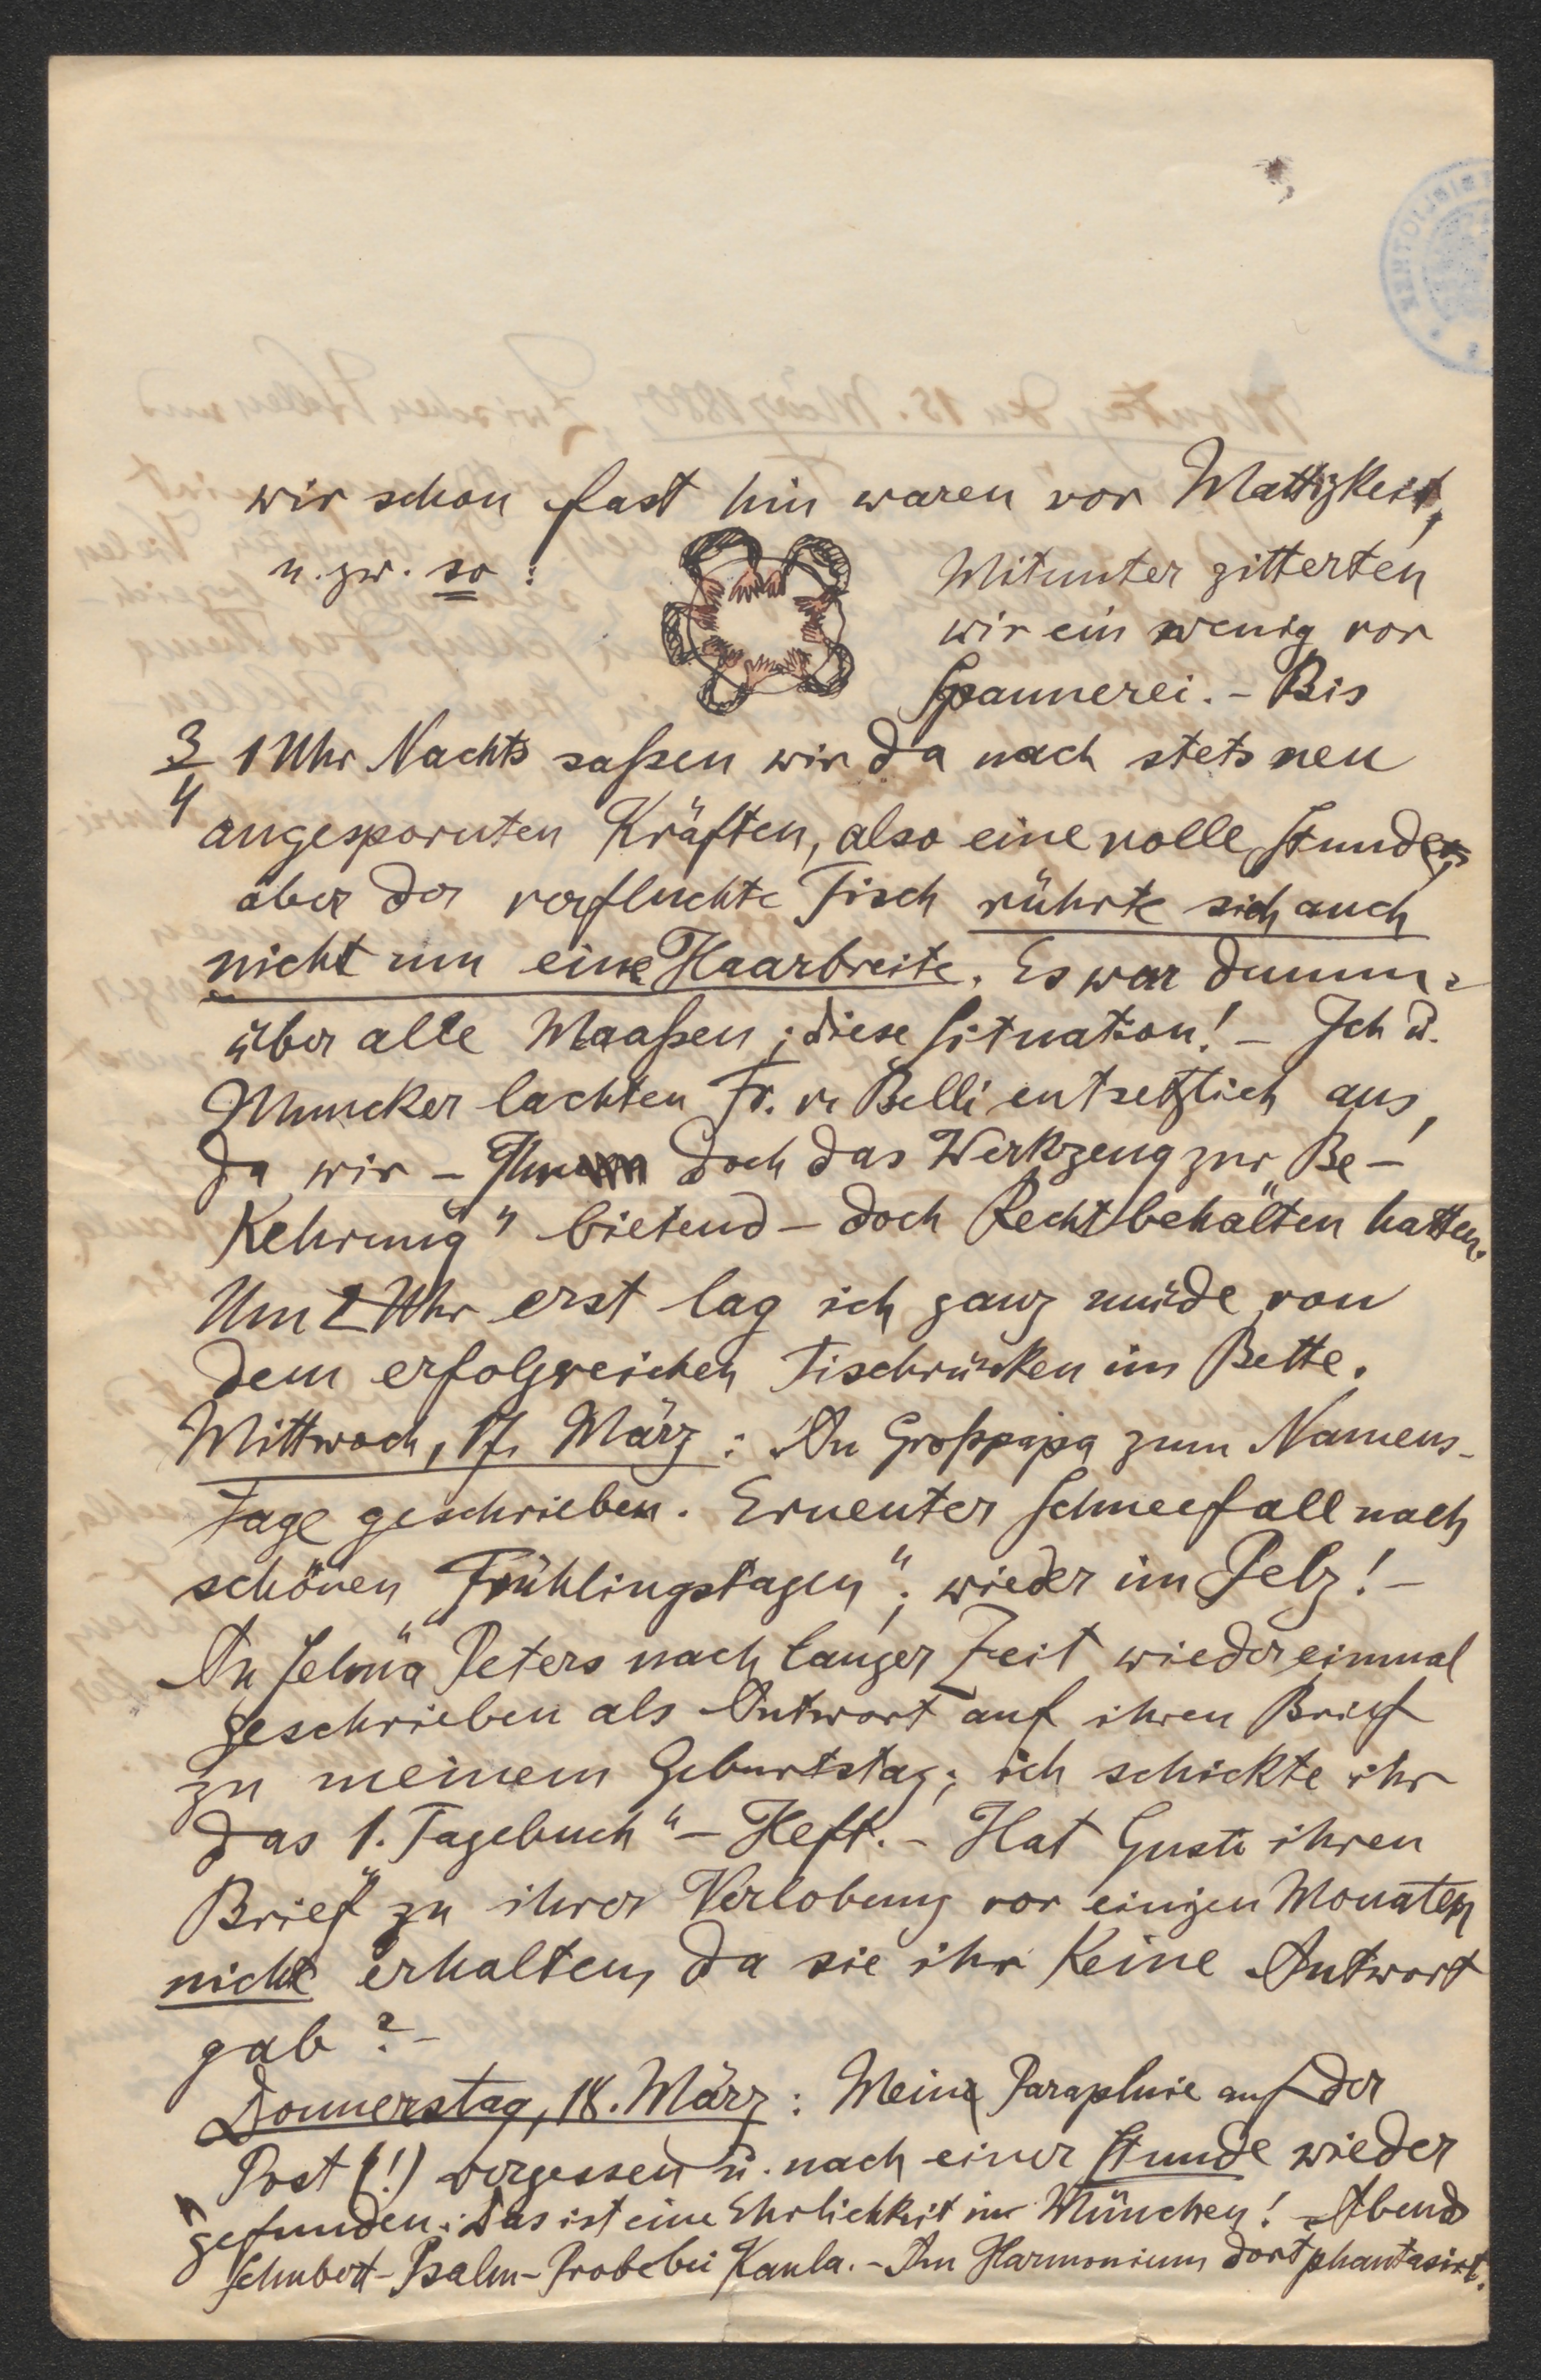 wir schon fast hin waren vor Mattigkeit,
u. zw. so : Mitunter zitterten
wir ein wenig vor
Spannerei. – Bis
3/4 1 Uhr Nachts saßen wir da nach stets neu
angespornten Kräften, also eine volle Stunde,
aber der verfluchte Tisch rührte sich auch
nicht um eine Haarbreite. Es war dumm
über alle Maaßen, diese Situation! – Ich u.
Muncker lachten Fr. v. Belli entsetzlich aus,
da wir – doch das Werkzeug zur „Be-
kehrung" bietend – doch Recht behalten hatten.
Um 2 Uhr erst lag ich ganz müde von
dem erfolgreichen Tischrücken im Bette.
Mittwoch, 17. März : An Großpapa zum Namens-
tage geschrieben. Erneuter Schneefall nach
schönen „Frühlingstagen"; wieder im Pelz! –
An Selma Peters nach langer Zeit wieder einmal
geschrieben als Antwort auf ihren Brief
zu meinem Geburtstag; ich schickte ihr
das 1. „Tagebuch"-Heft. – Hat Gusti ihren
Brief zu ihrer Verlobung vor einigen Monaten
nicht erhalten, da sie ihr keine Antwort
gab? –
Donnerstag, 18. März : Mein Parapluie auf der
Post (!) vergessen u. nach einer Stunde wieder
gefunden. Das ist eine Ehrlichkeit in München! – Abend
Schubert-Psalm-Probe bei Kaula. – Am Harmonium dort phantasirt.